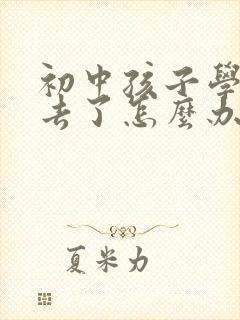 初中孩子學
去了怎麼办
夏米力